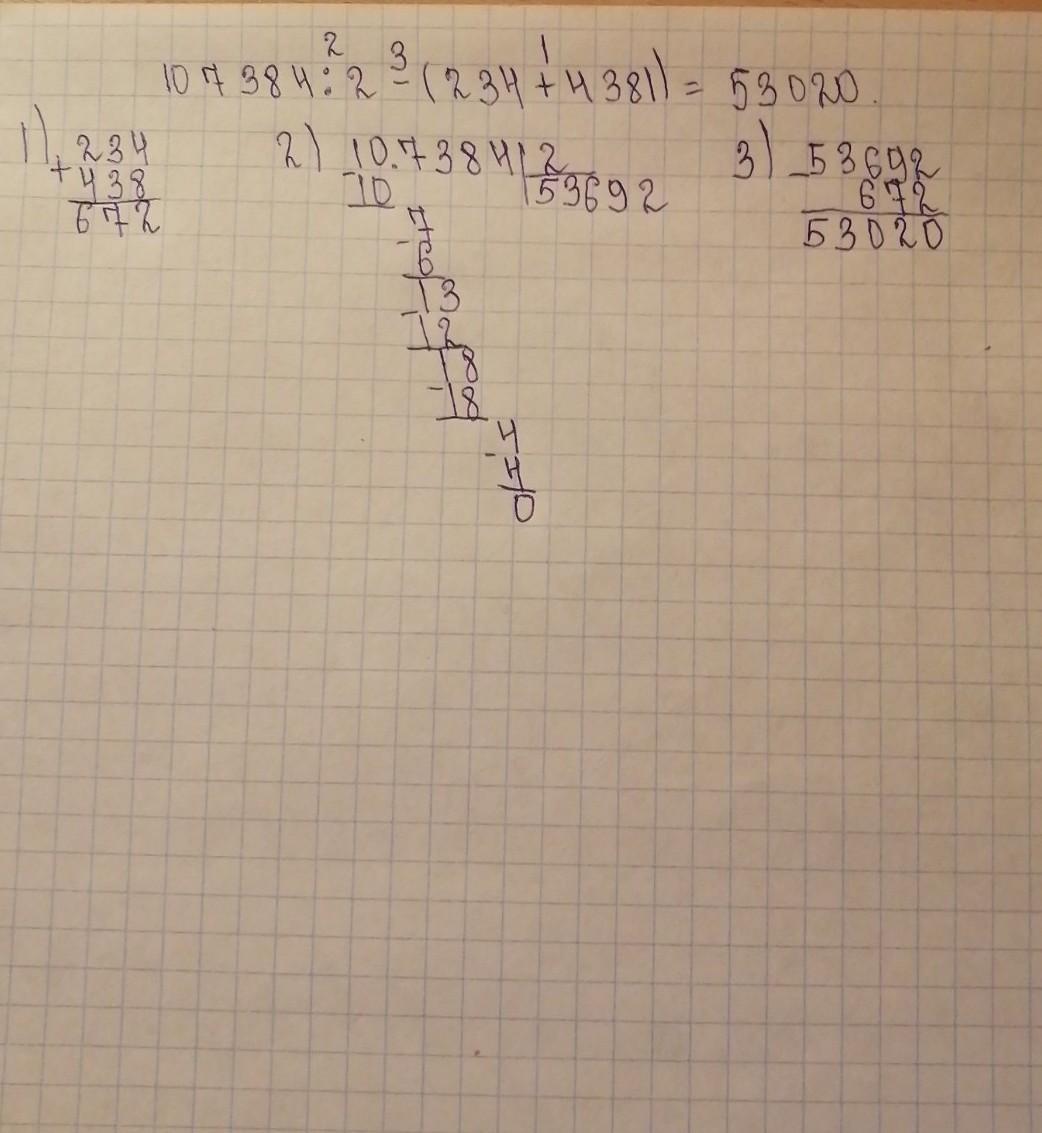 2 3 1
107384:2-(234+438))= 53020.
1) +234
438
672
2) -10.7384|2
10 |53692
7
- 6
13
-12
18
-18
4
- 4
0
3) -53692
672
53020